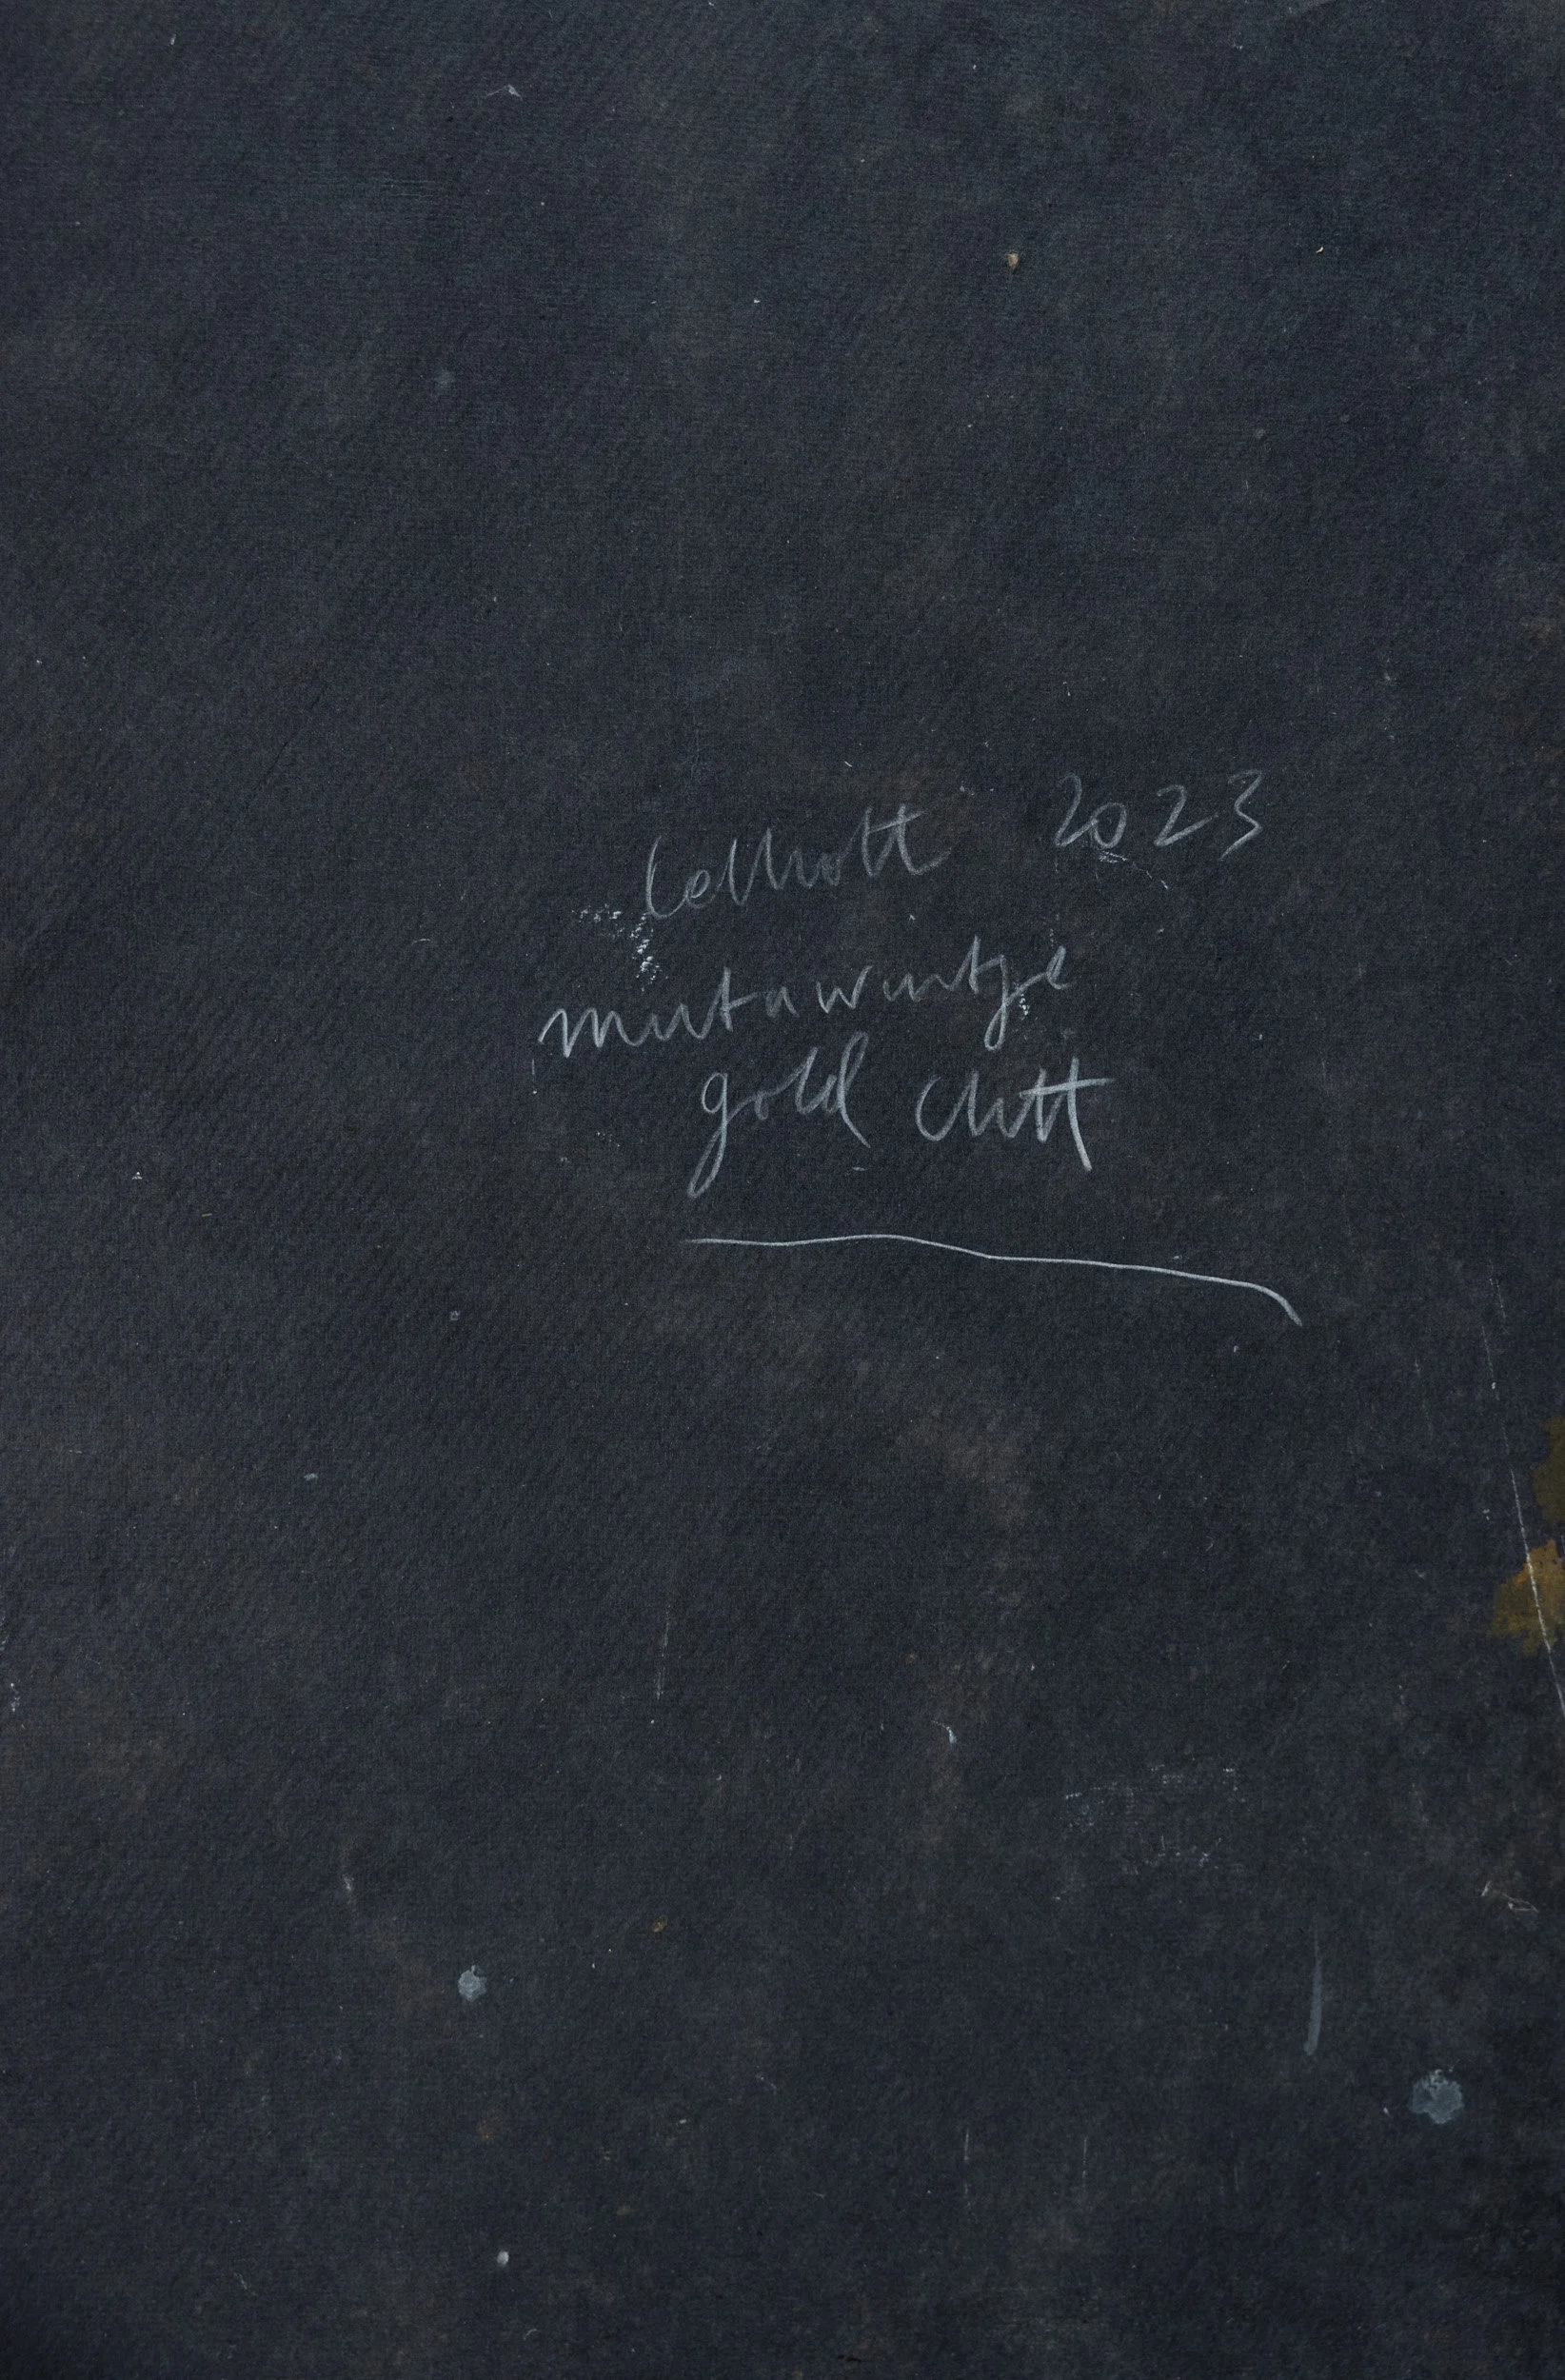 celliott 2023
mutawintje
gold cliff